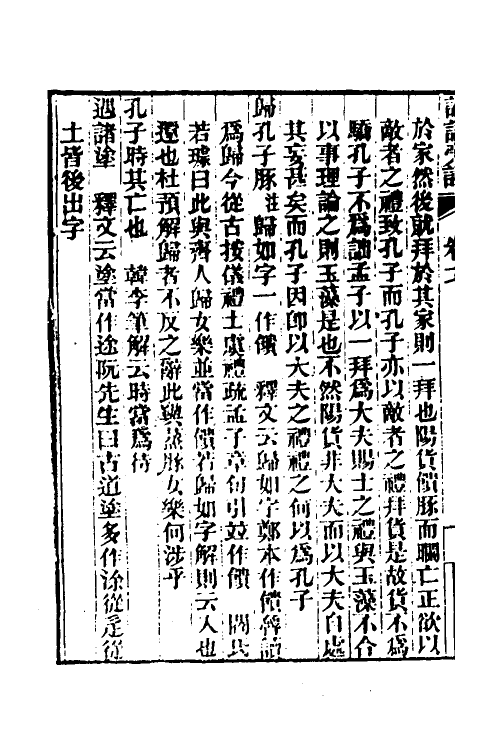 於家然後就拜於其家則一拜也陽貨饋豚而瞷亡正欲以
敵者之禮致孔子而孔子亦以敵者之禮拜貨是故貨不爲
驕孔子不爲詘孟子以一拜爲大夫賜士之禮與玉藻不合
以事理論之則玉藻是也不然陽貨非大夫而以大夫自處
其妄甚矣而孔子因卽以大夫之禮禮之何以爲孔子
歸孔子豚註歸如字一作饋　釋文云歸如字鄭本作饋魯讀
爲歸今從古按儀禮士虞禮疏孟子章句引並作饋　閻氏
若璩曰此與齊人歸女樂並當作饋若歸如字解則云人也
還也杜預解歸者不反之辭此與蒸豚女樂何涉乎
孔子時其亡也　韓李筆解云時當爲待
遇諸塗　釋文云塗當作途阮先生曰古道塗多作涂從辵從
土皆後出字